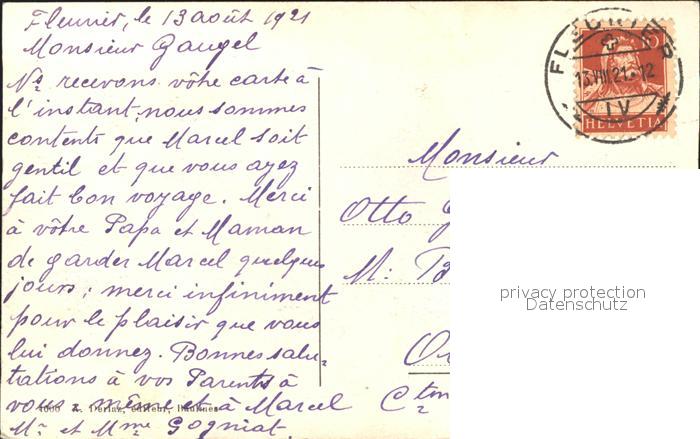 Fleurier, le 13 août 1921
Monsieur Gaugel
Ns recevons vôtre carte à
l'instant, nous sommes
contents que Marcel soit
gentil et que vous ayez
fait bon voyage. Merci
à vôtre Papa et Maman
de garder Marcel quelques
jours; merci infiniment
pour le plaisir que vous
lui donnez. Bonnes salu-
tations à vos Parents à
vous-même et à Marcel
Mr et Mme Gogniat
éditeur,
FLEURIER
13.VIII.21.-12
LV
10
HELVETIA
Monsieur
Otto
M:
Ctn
privacy protection
Datenschutz